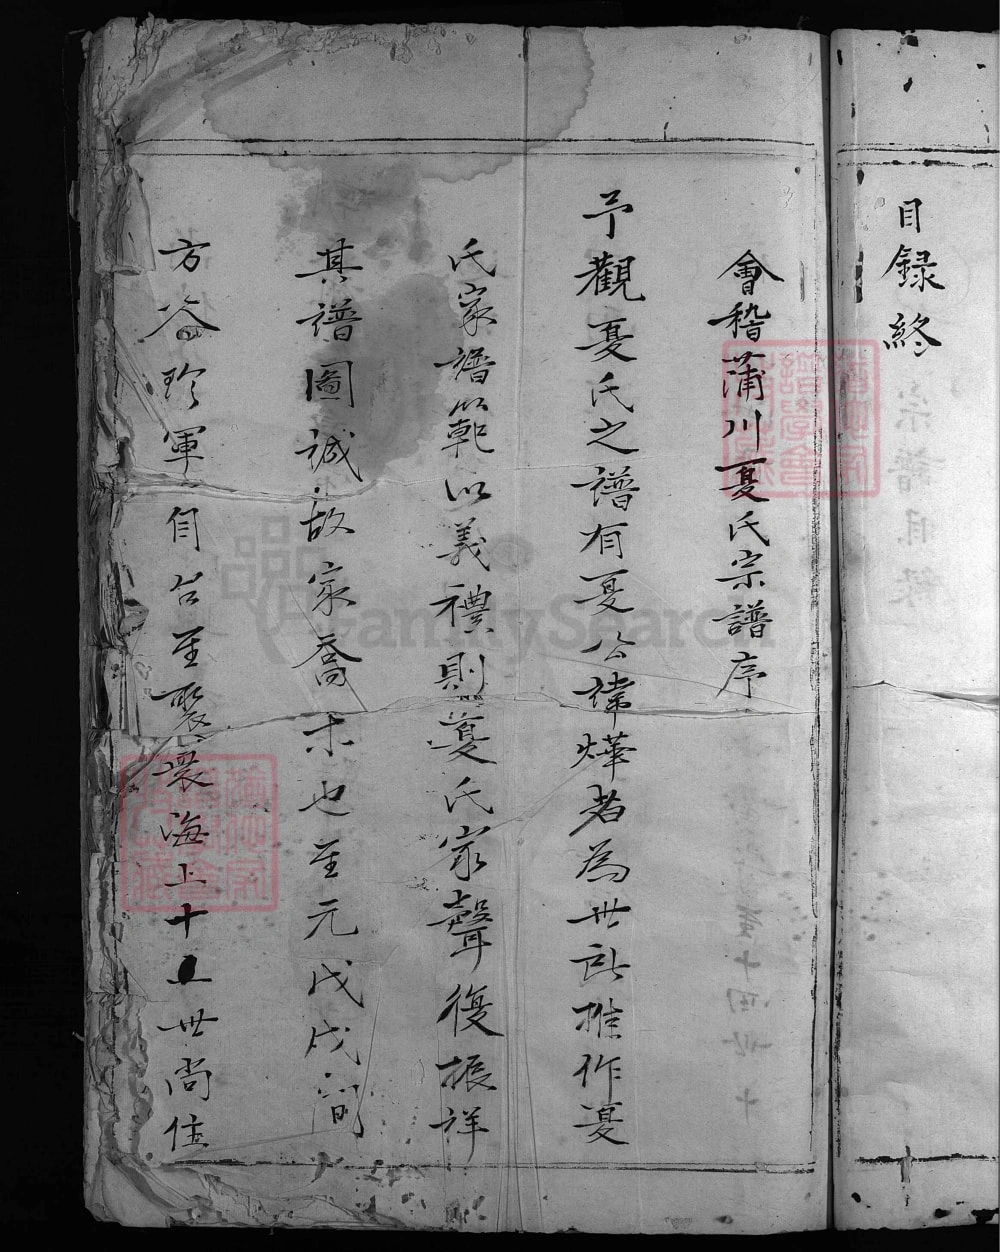 目録終
會稽蒲川夏氏宗譜序
予觀夏氏之譜有夏公諱燁者為世所推作夏
氏家譜以範以義禮則夏氏家聲復振詳
其譜圖誠故家喬木也至元戊戌間
方谷珍軍自台至襲海上十世尚住
FamilySearch